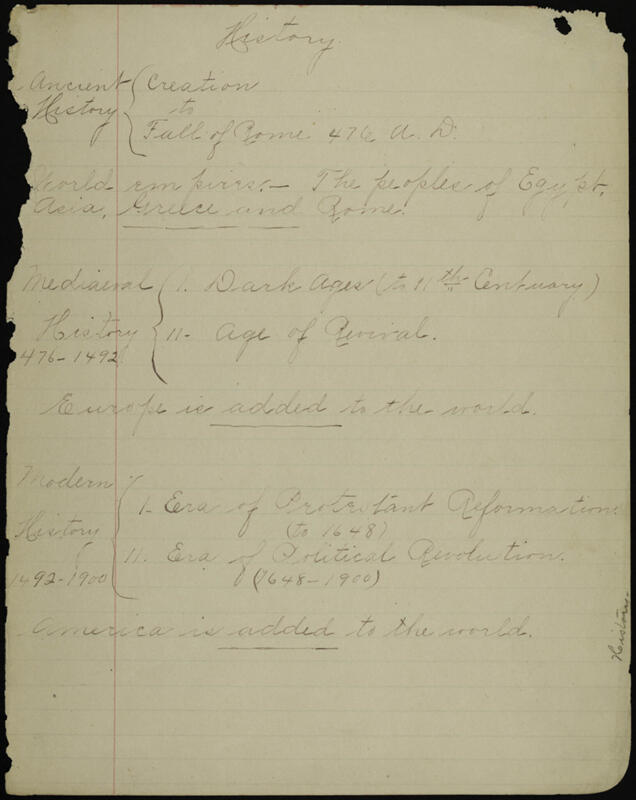 History.
Ancient History { Creation
to
Fall of Rome 476 A.D.
World empires:— The peoples of Egypt,
Asia, Greece and Rome.
Mediaeval { I. Dark Ages (to 11th Centuary)
History II- Age of Revival.
476-1492
Europe is added to the world.
Modern { I- Era of Protestant Reformation
History (to 1648)
II. Era of Political Revolution.
1492-1900 (1648-1900)
America is added to the world.
History.